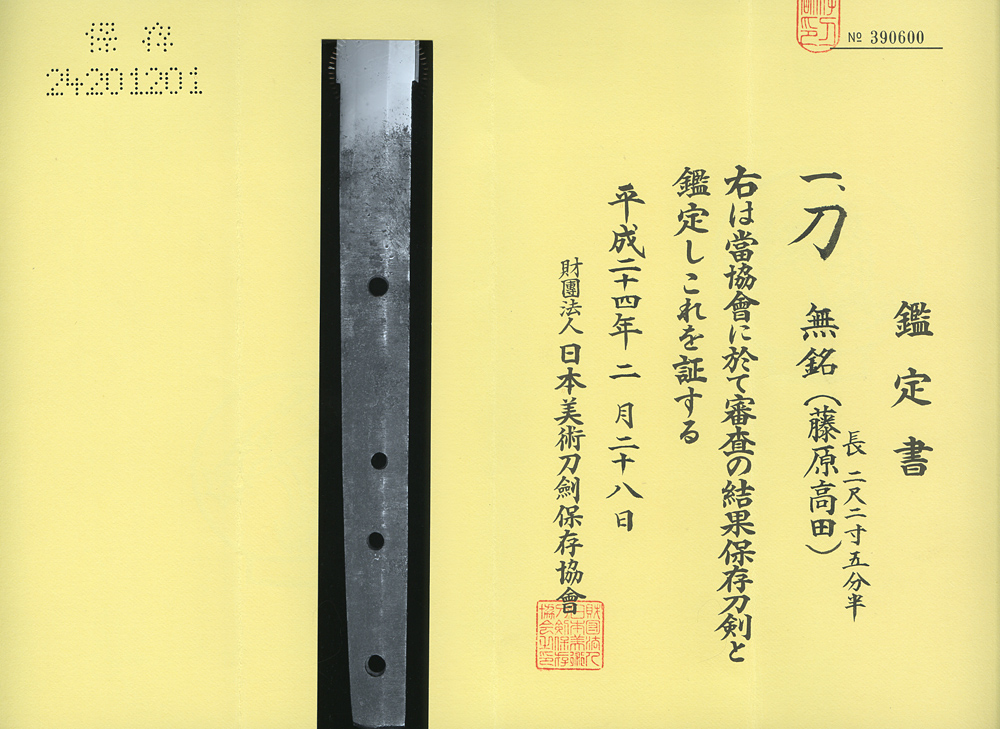 鑑定書
一、刀 無銘(藤原高田)
長 二尺二寸五分半
右は當協會に於て審査の結果保存刀剣と
鑑定しこれを証する
平成二十四年 二 月二十八日
財團法人 日本美術刀劍保存協會
№ 390600
保存
24201201